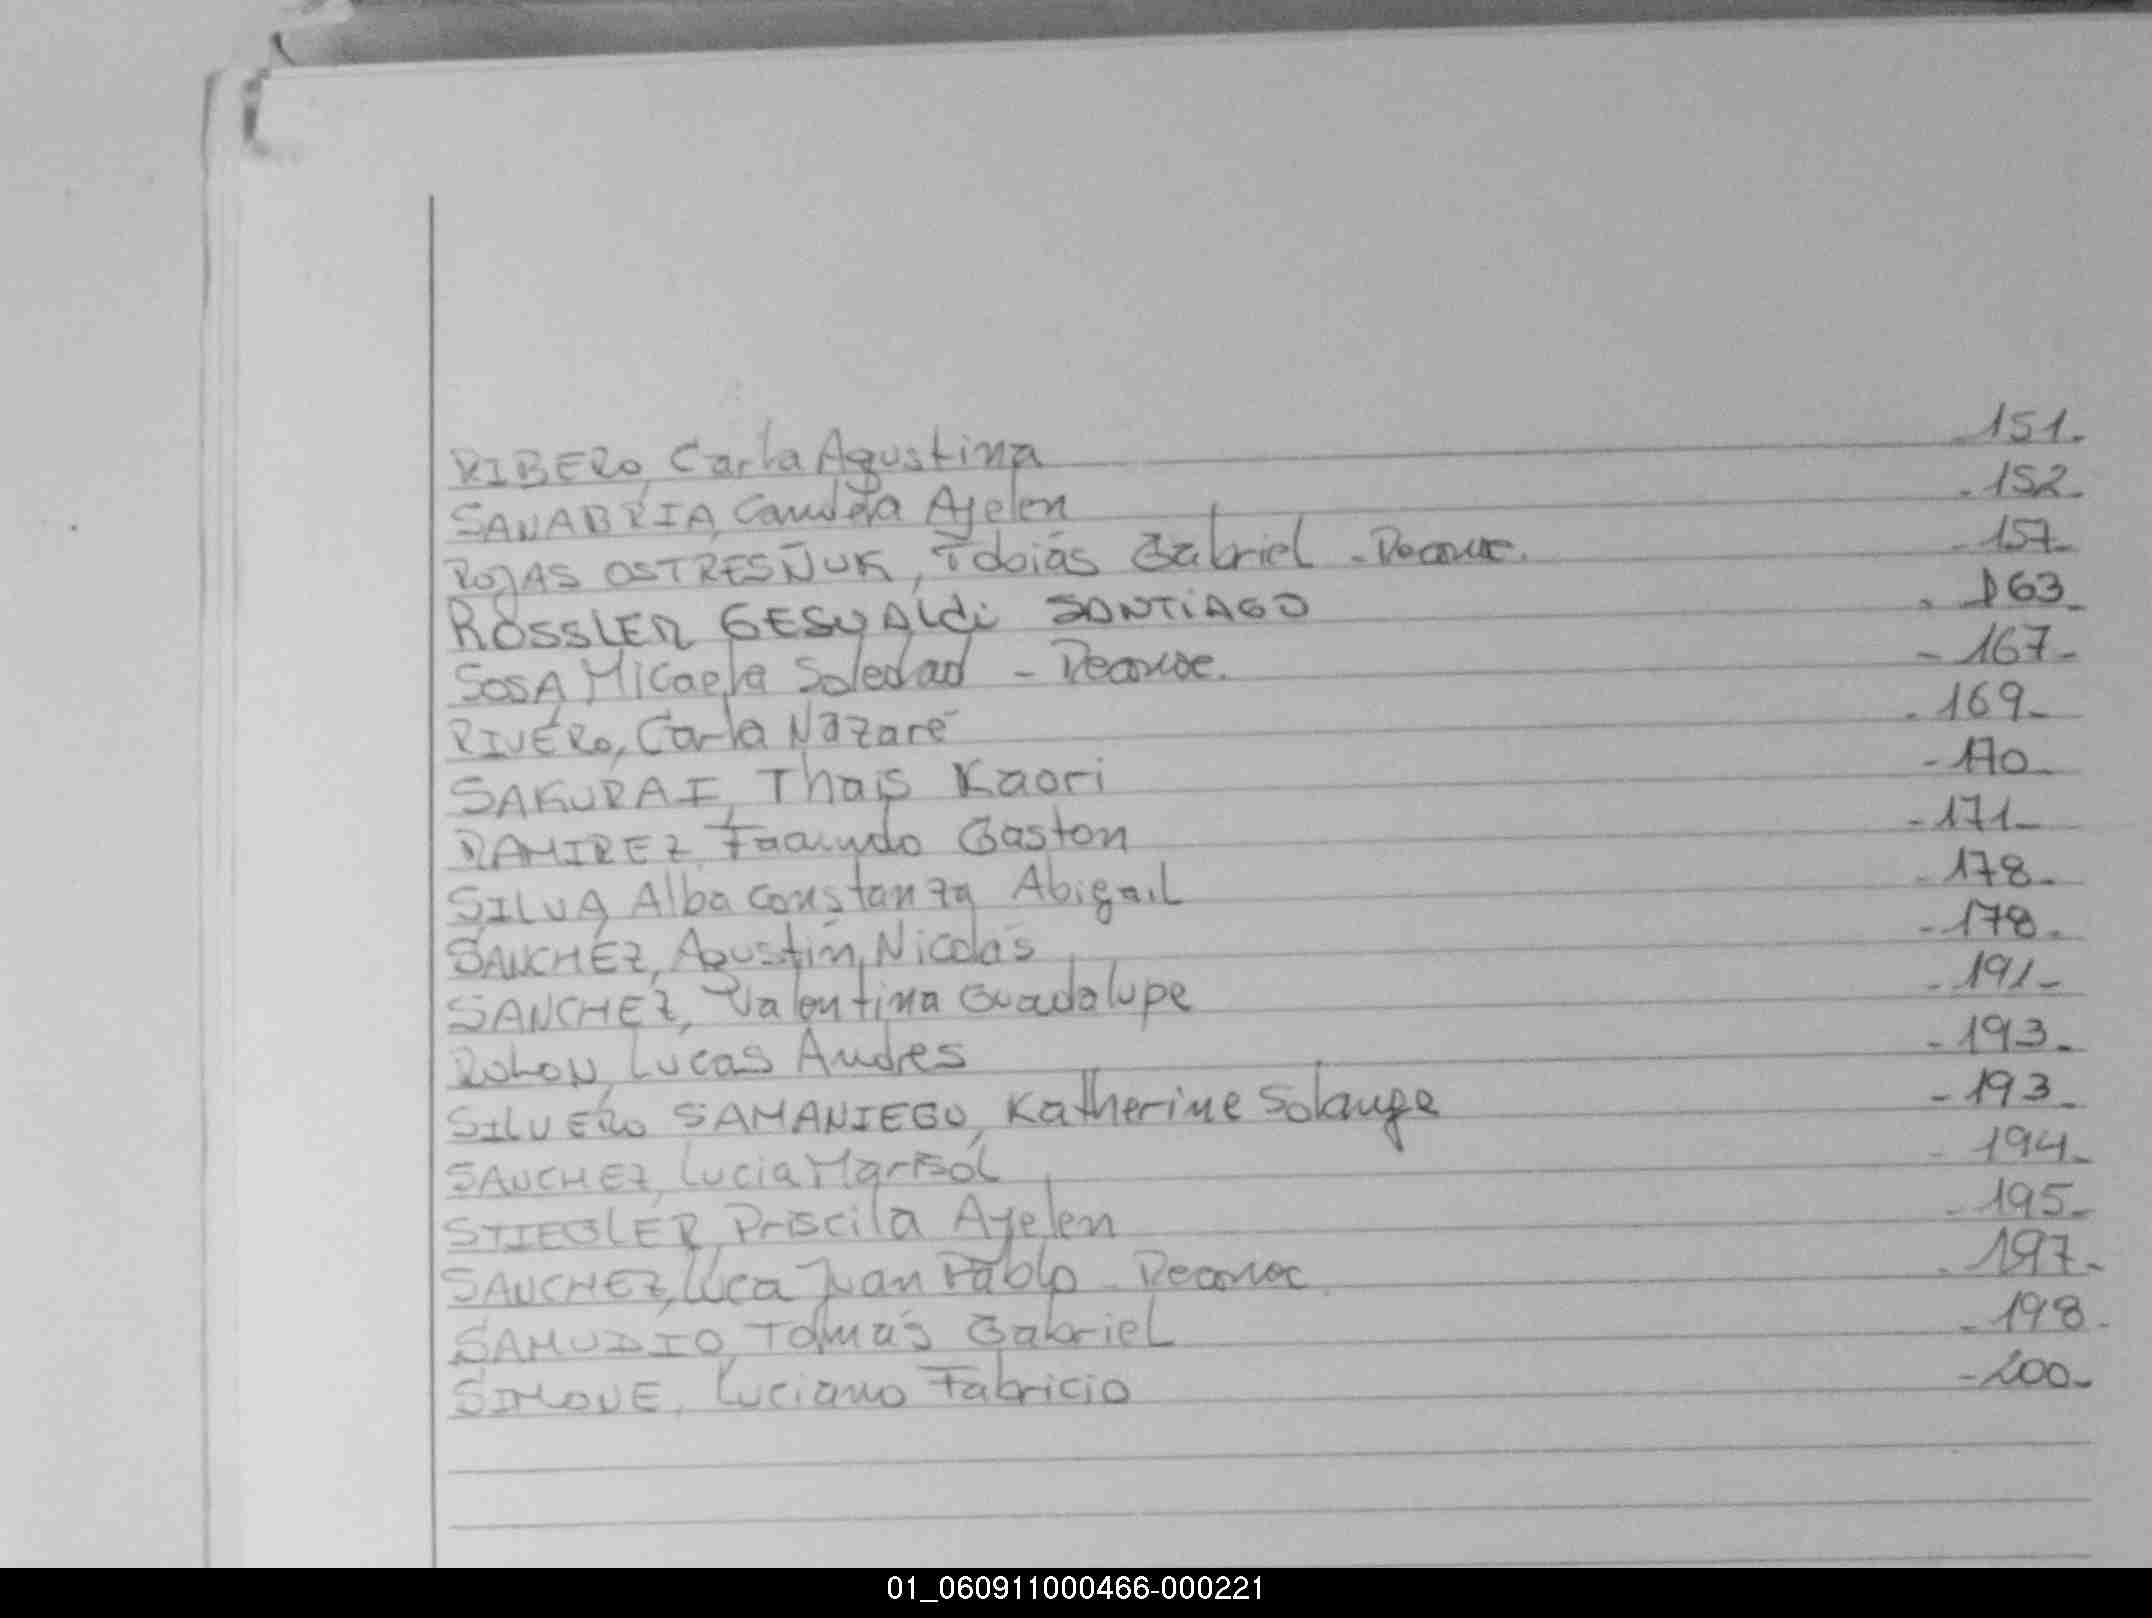 RIBERO, Carla Agustina 151.
SANABRIA, Candela Ayelen - 152-
ROJAS OSTRESÑUK, Tobiás Gabriel - Reconoc. - 157-
ROSSLER GESUALdi SANTIAGO - 163-
SOSA, Micaela Soledad - Reconoc. - 167-
RIVERO, Carla Nazaré - 169-
SAKURAI, Thais Kaori - 170-
RAMIREZ, Facundo Gaston - 171-
SILVA, Alba Constanza Abigail - 178-
SANCHEZ, Agustín Nicolás - 178-
SANCHEZ, Valentina Guadalupe - 191-
ROLON, Lucas Andres - 193-
SILVERO SAMANIEGO, Katherine Solange - 193-
SANCHEZ, Lucia Marisol - 194-
STIEGLER, Priscila Ayelen - 195-
SANCHEZ, Luca Juan Pablo - Reconoc - 197-
SAMUDIO, Tomás Gabriel - 198-
SIMONE, Luciano Fabricio - 200-
01_060911000466-000221